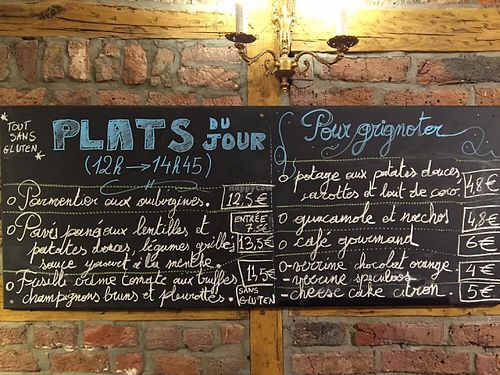 * TOUT
SANS
GLUTEN. *
PLATS DU JOUR
(12H → 14H45)
o Parmentier aux aubergines. 12,5€
ENTRÉE
7.5€
o Pavés panés aux lentilles et
patates douces, légumes grillés 13,5€
sauce yaourt à la menthe.
o Fusille crème tomate aux truffes 11,5€
champignons bruns et pleurottes.
SANS
GLUTEN
Pour grignoter
o potage aux patates douces,
carottes et lait de coco. 4,8€
o guacamole et nachos 4,8€
o café gourmand 6€
o - verrine chocolat orange. 4€
- verrine speculoos
- cheese cake citron. 5€